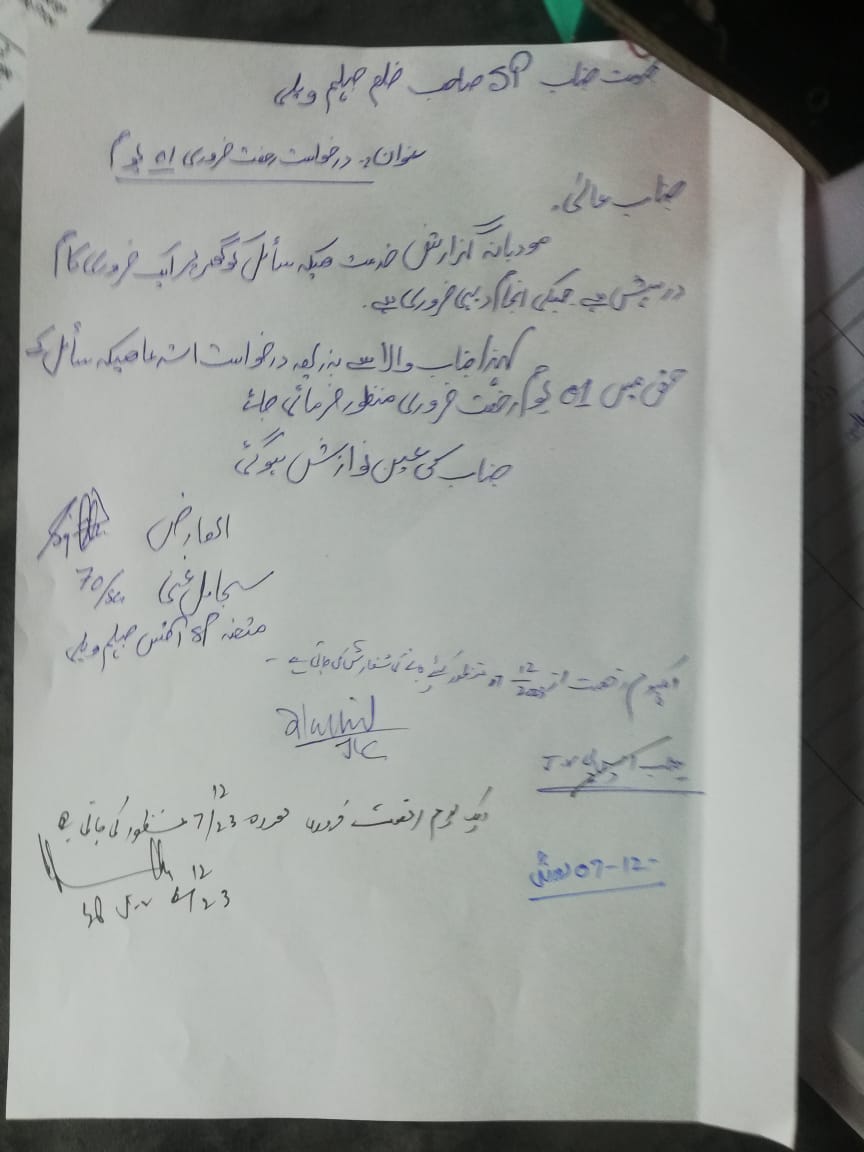 بخدمت جناب SP صاحب ضلع جہلم ویلی
عنوان:۔ درخواست رخصت ضروری 01 یوم
جناب عالی۔
مودبانہ گزارش خدمت ھیکہ سائل کو گھر پر ایک ضروری کام
درپیش ہے جسکی انجام دہی ضروری ہے۔
لہذا جناب والا سے بذریعہ درخواست استدعا ھیکہ سائل کے
حق میں 01 یوم رخصت ضروری منظور فرمائی جائے
جناب کی عین نوازش ہوگی
العارض
سجاول غنی 70/
متعینہ SP آفس جہلم ویلی
یوم رخصت از 12 منظور کیے جانے کی سفارش کی جاتی ہے۔
ایک یوم رخصت ضروری مورخہ 7/12/23 منظور کی جاتی ہے
12
/23
07-12-